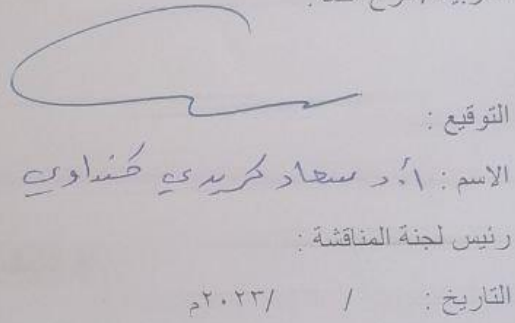 التوقيع :
الاسم : أ.د سعاد كريدي كنداوي
رئيس لجنة المناقشة :
التاريخ : / /٢٠٢٣م